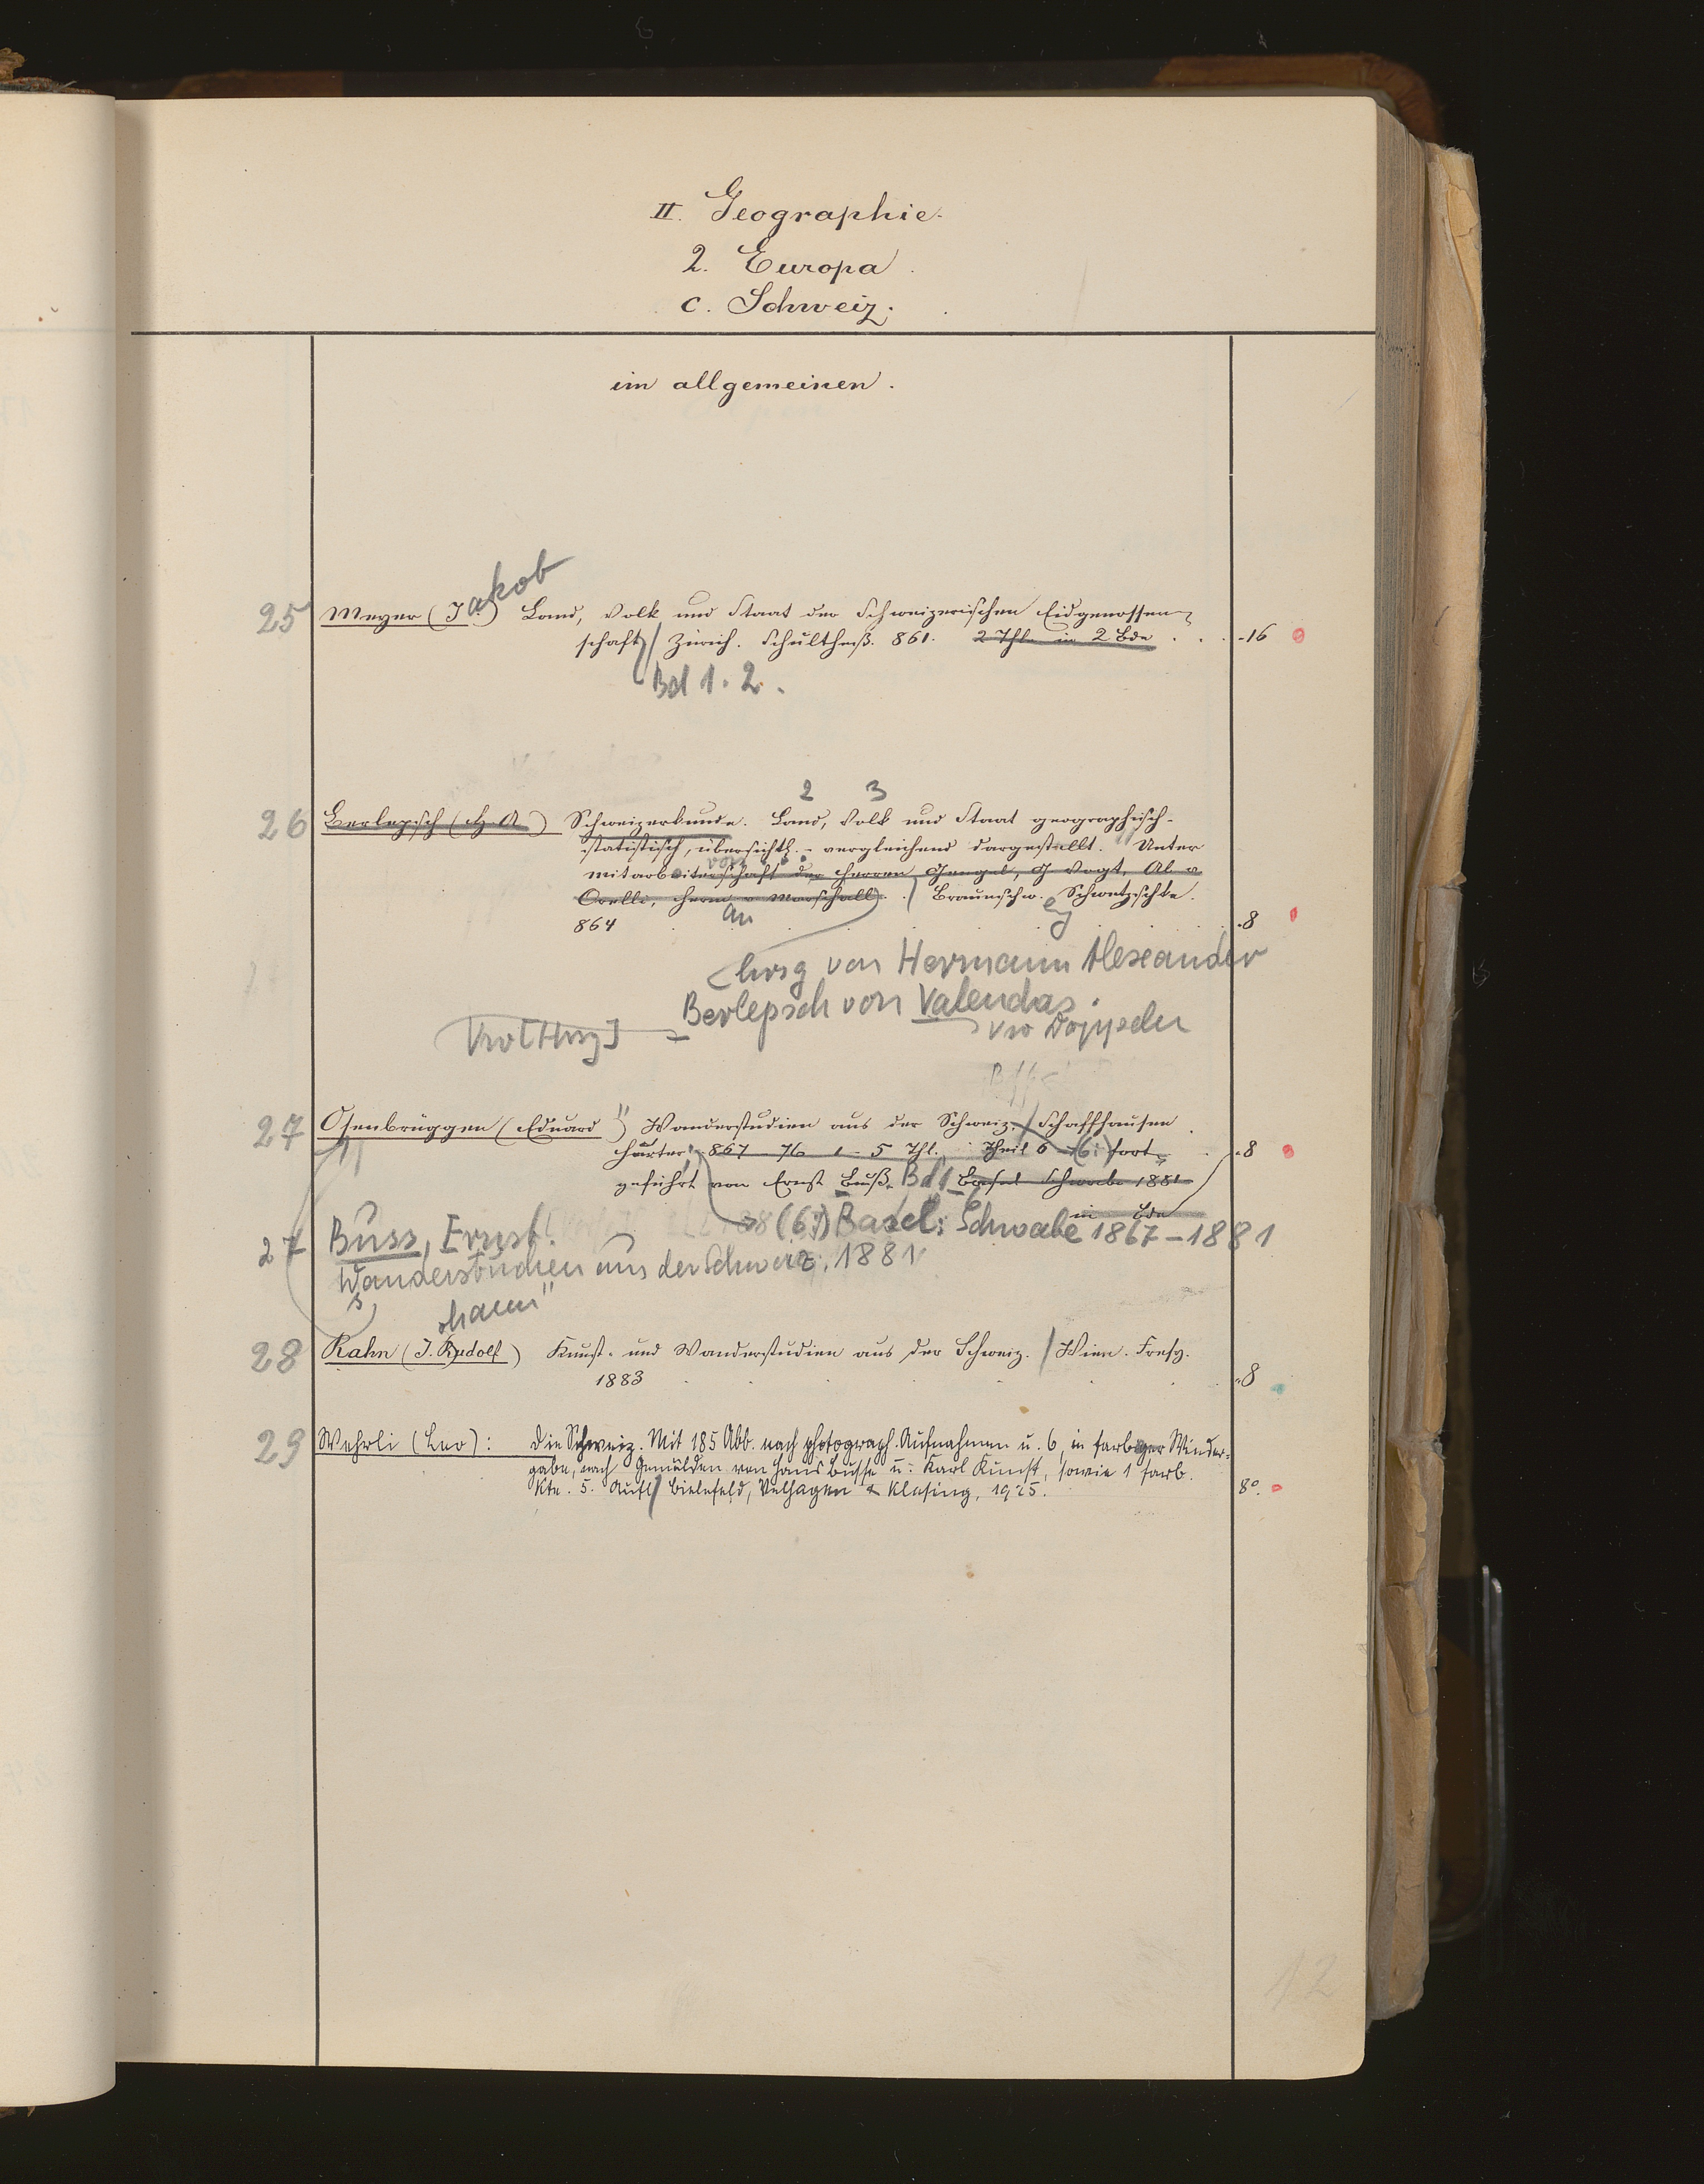 II. Geographie.
2. Europa.
c. Schweiz.
im allgemeinen.
25 Meyer (Jakob) Land, Volk und Staat der Schweizerischen Eidgenossen-
schaft / Zürich. Schultheß. 861. 2 Thle in 2 Bde . . . -16
Bd 1. 2.
2 3
26 Berlepsch (H. A.) Schweizerkunde. Land, Volk und Staat geographisch-
statistisch, übersichtl. - vergleichend dargestellt. Unter
mitarbeiterschaft der Herren Gengel, G Vogt, Al v
von
Orelli, Herm v Marschall). / Braunschw. Schwetzschke.
864 . . . . . -8
hrsg von Hermann Alexander
Berlepsch von Valendas.
Vw [Hrsg] Vw Doppeln
27 Osenbrüggen (Eduard) Wanderstudien aus der Schweiz. / Schaffhausen.
Hurter; 867-76 1-5 Thl. Theil 6 (6:) fort- -8
geführt von Ernst Buß. Bd 1- Basel Schwabe 1881
in Bde
(6:) Basel: Schwabe 1867-1881
27 Buss, Ernst:
Wanderstudien aus der Schweiz. 1881
ohann
28 Rahn (J. Rudolf) Kunst- und Wanderstudien aus der Schweiz. / Wien.
1883 . . . . . -8
29 Wehrli (Leo): Die Schweiz. Mit 185 Abb. nach photograph. Aufnahmen u. 6, in farbiger Wieder-
gabe, nach Gemälden von Hans Busse u. Karl Kunst, sowie 1 farb.
Kte. 5. Aufl / Bielefeld, Velhagen & Klasing, 1925. 8°.
12